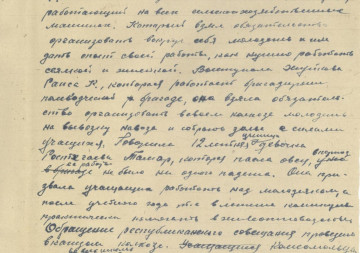 работающий на всех сельскохозяйственных
машинах. Который взял обязательство
организовать вокруг себя молодежь и им
дать опыт своей работы, как нужно работать
сеялкой и жнейкой. Выступила
Раиса Г., которая работает бригадиром
полеводческой бригаде, она взяла обязатель-
ство организовать в своем колхозе молодежь
на вывозку навоза и собрание золы с силами
учащихся. Говорила 12 летняя девочка
Тамара, которая пасла овец,
не было ни одного падежа. Она при-
звала учащихся работать над молодняком, а
после учебного года в летние каникулы
практически помогать в животноводстве.
Обращение республиканского совещания проведено
в нашем колхозе. Комсомольцы